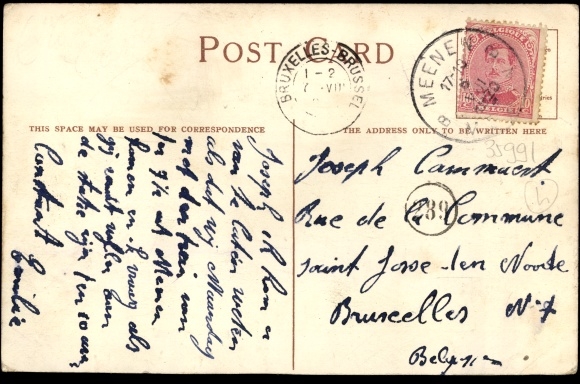 POST CARD
BRUXELLES-BRUSSEL
1-2
VIII
MEENEN
17-18
B
BELGIQUE
BELGIË
THIS SPACE MAY BE USED FOR CORRESPONDENCE
THE ADDRESS ONLY TO BE WRITTEN HERE
35991
Joseph ik kom u
van te laten weten
als dat wij Maandag
met den trein van
at Meenen
komen en ik vraag als
gij zoudt willen aan
de statie zijn ten 10 uur
Constant Emilie
Joseph Cammaert
Rue de la Commune
289
saint Josse-ten Noode
Bruxelles N° 7
Belgien